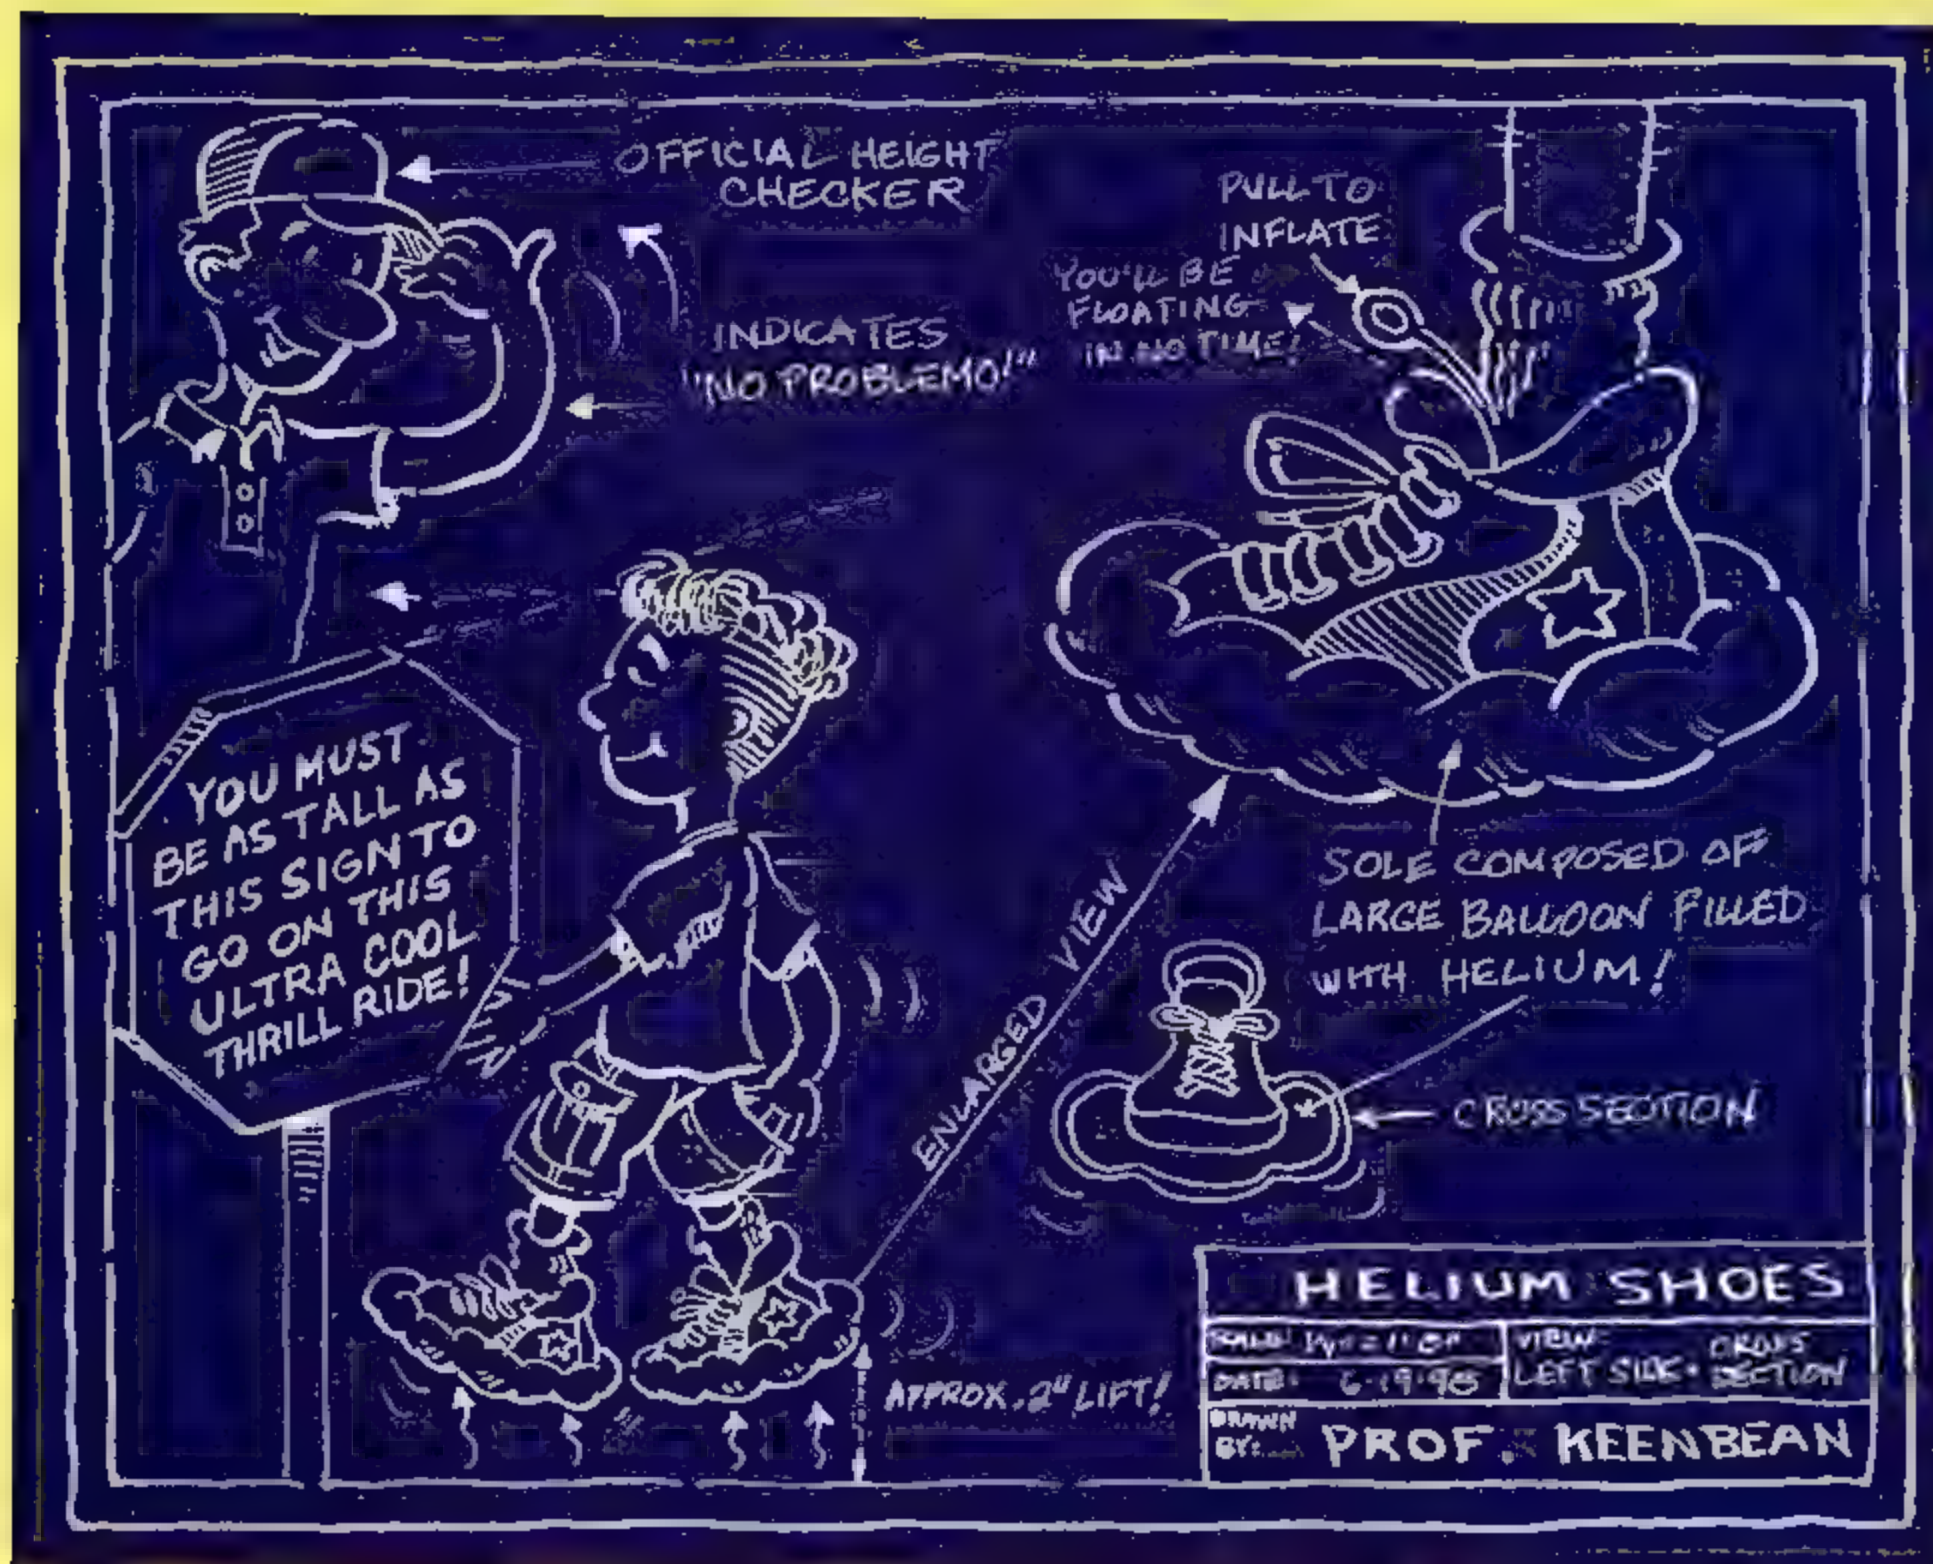 OFFICIAL HEIGHT
CHECKER
INDICATES
"NO PROBLEMO!"
PULL TO
INFLATE
YOU'LL BE
FLOATING
IN NO TIME!
YOU MUST
BE AS TALL AS
THIS SIGN TO
GO ON THIS
ULTRA COOL
THRILL RIDE!
ENLARGED VIEW
SOLE COMPOSED OF
LARGE BALLOON FILLED
WITH HELIUM!
CROSS SECTION
APPROX. 2" LIFT!
HELIUM SHOES
VIEW:
LEFT SIDE • CROSS
SECTION
DATE: 6-19-98
DRAWN
BY:
PROF. KEENBEAN